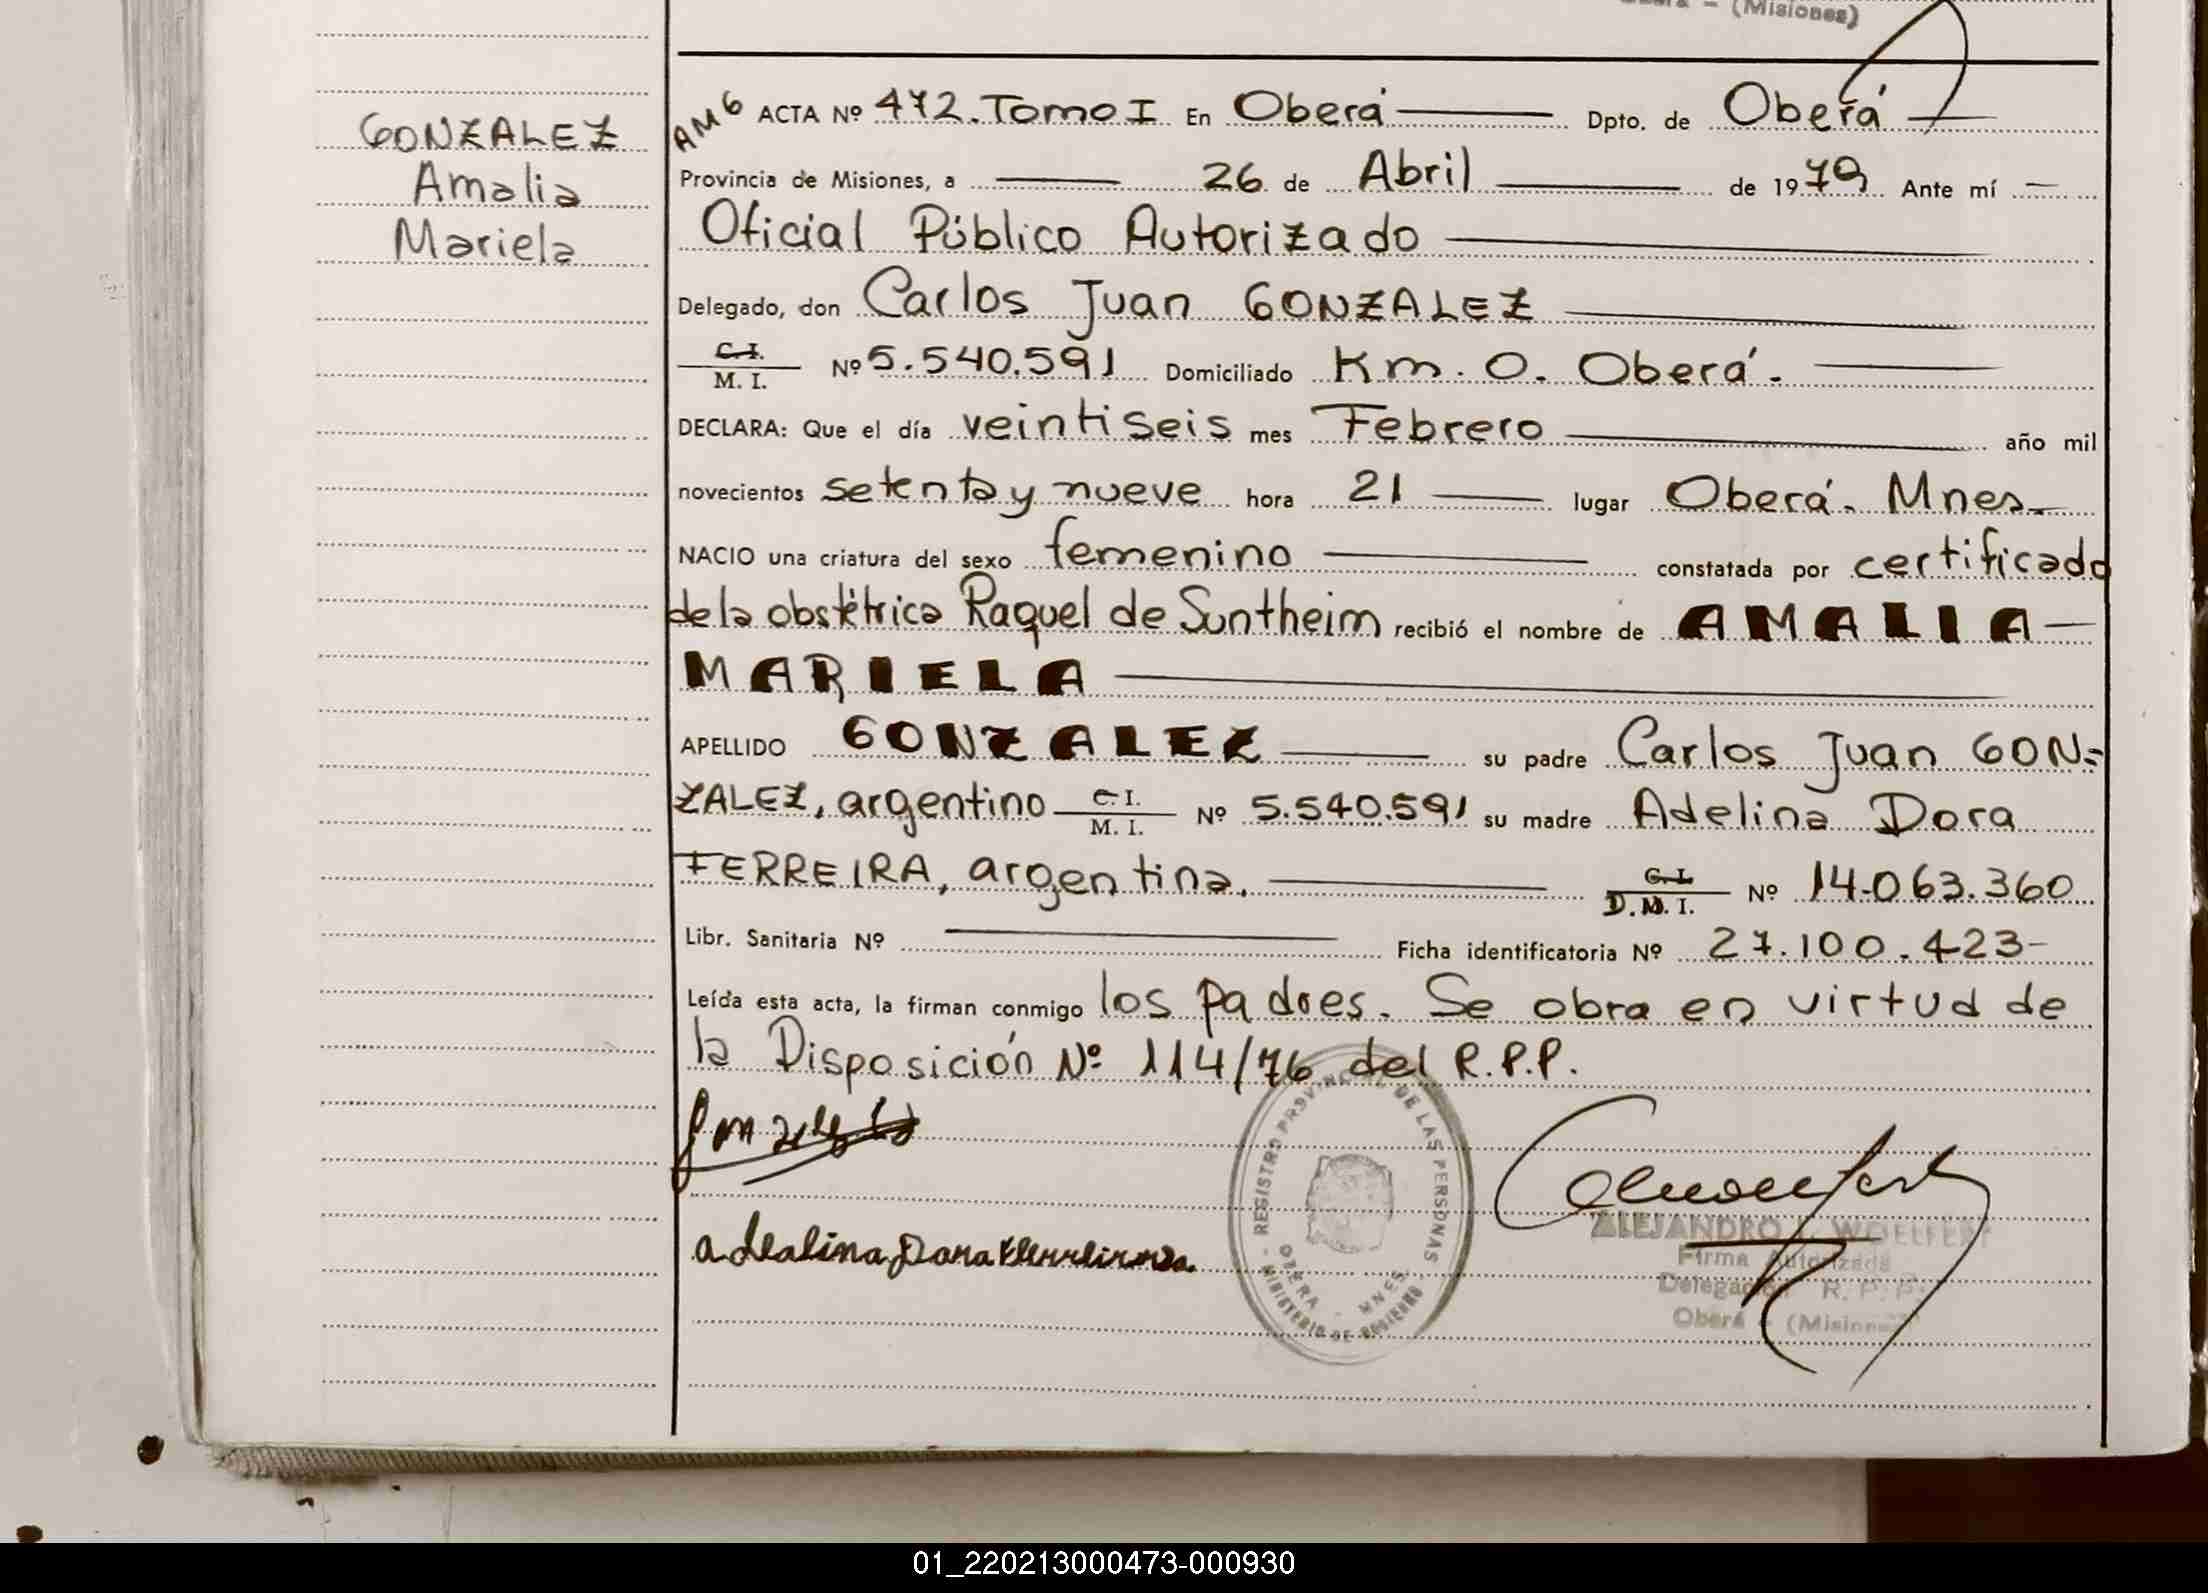 (Misiones)
GONZALEZ
Amalia
Mariela
AMG ACTA Nº 472. Tomo I En Oberá Dpto. de Oberá
Provincia de Misiones, a 26 de Abril de 1979 Ante mí
Oficial Público Autorizado
Delegado, don Carlos Juan GONZALEZ
C. I.
M. I. Nº 5.540.591 Domiciliado Km. 0. Oberá.
DECLARA: Que el día veintiseis mes Febrero año mil
novecientos setenta y nueve hora 21 lugar Oberá. Mnes.
NACIO una criatura del sexo femenino constatada por certificado
de la obstétrica Raquel de Suntheim recibió el nombre de AMALIA
MARIELA
APELLIDO GONZALEZ su padre Carlos Juan GON=
ZALEZ, argentino C. I. M. I. Nº 5.540.591 su madre Adelina Dora
FERREIRA, argentina. C. I. D. N. I. Nº 14.063.360
Libr. Sanitaria Nº Ficha identificatoria Nº 27.100.423
Leída esta acta, la firman conmigo los padres. Se obra en virtud de
la Disposición Nº 114/76 del R.P.P.
REGISTRO PROVINCIAL DE LAS PERSONAS
OBERA - MNES.
MINISTERIO DE GOBIERNO
ALEJANDRO L. WOELFERT
Firma Autorizada
Delegación R. P. P.
Oberá - (Misiones)
01_220213000473-000930